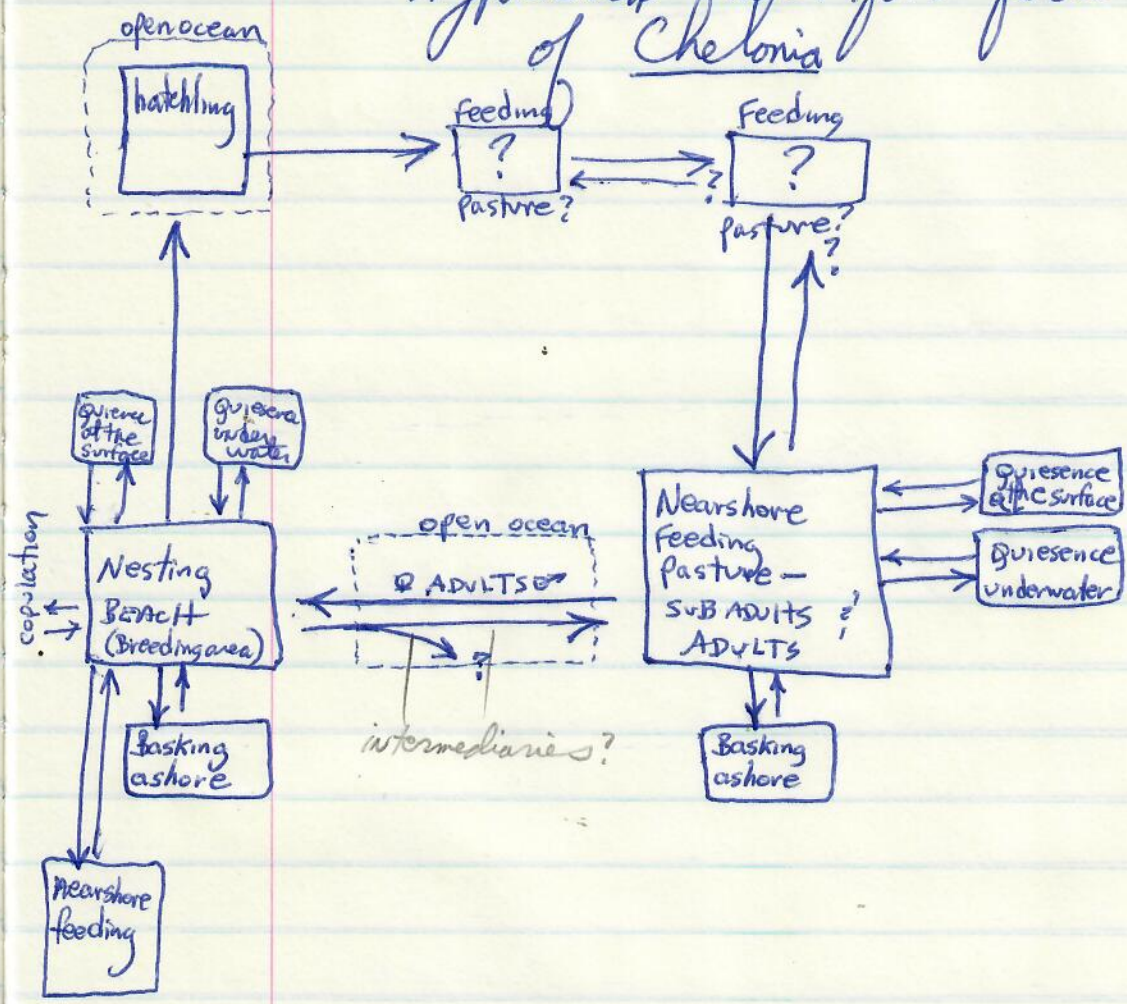 of Chelonia
open ocean
hatchling
Feeding
?
Pasture?
?
Feeding
?
pasture?
?
Quience
at the
surface
Quiesence
under
water
copulation
Nesting
BEACH
(Breeding area)
open ocean
♀ ADULTS ♂
?
intermediaries?
Nearshore
Feeding
Pasture —
SUB ADULTS ?
ADULTS
Quiesence
@ the surface
Quiesence
underwater
Basking
ashore
Basking
ashore
Nearshore
feeding